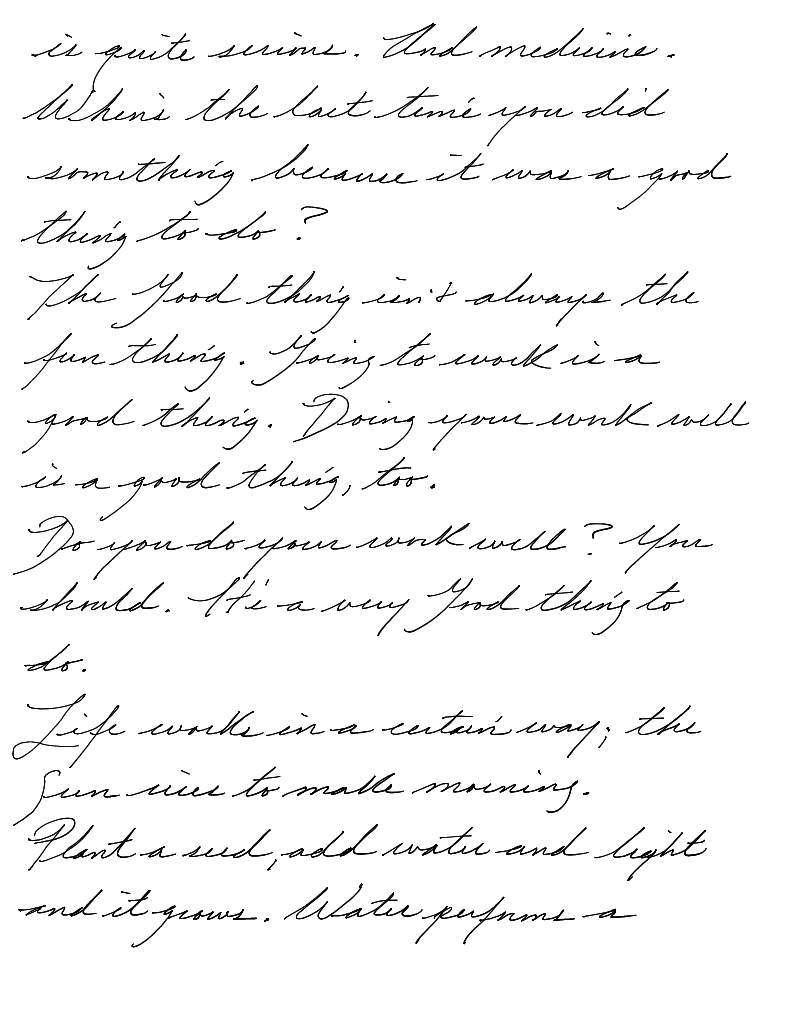 is quite serious. And medicine.
When's the last time you did
something because it was a good
thing to do?
The Good thing isn't always the
fun thing. Going to work is a
good thing. Doing your work well
is a good thing, too.
Do you do your work well? You
should. It's a very Good thing to
do.
Life works in a certain way; the
Sun rises to make morning.
Plant a seed, add water and light
and it grows. Water performs a